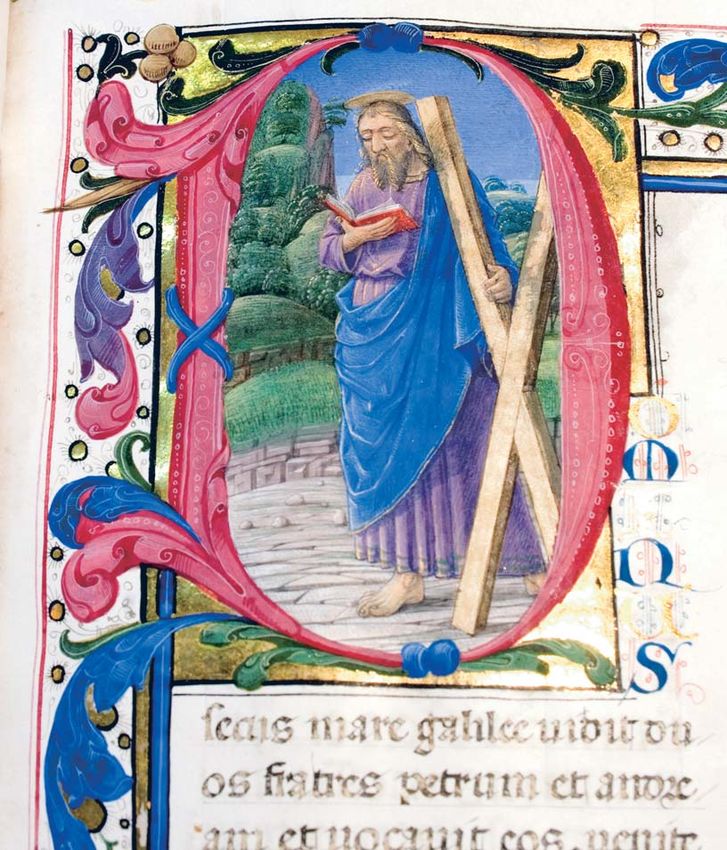 Dominus
secus mare galilee uidit du
os fratres petrum et andre
am et uocauit eos. uenite